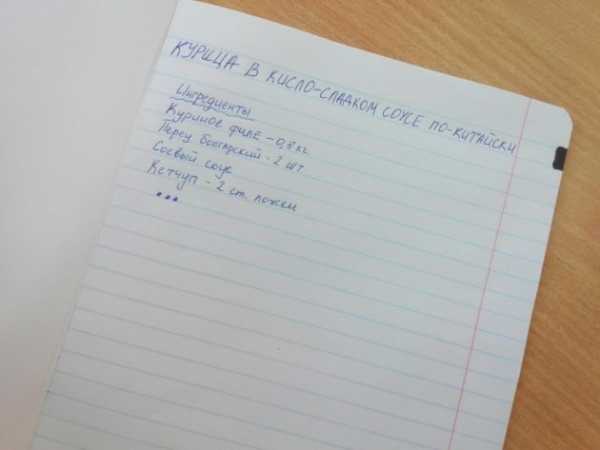 КУРИЦА В КИСЛО-СЛАДКОМ СОУСЕ ПО-КИТАЙСКИ
Ингредиенты
Куриное филе - 0,5 кг
Перец болгарский - 2 шт
Соевый соус
Кетчуп - 2 ст. ложки
...